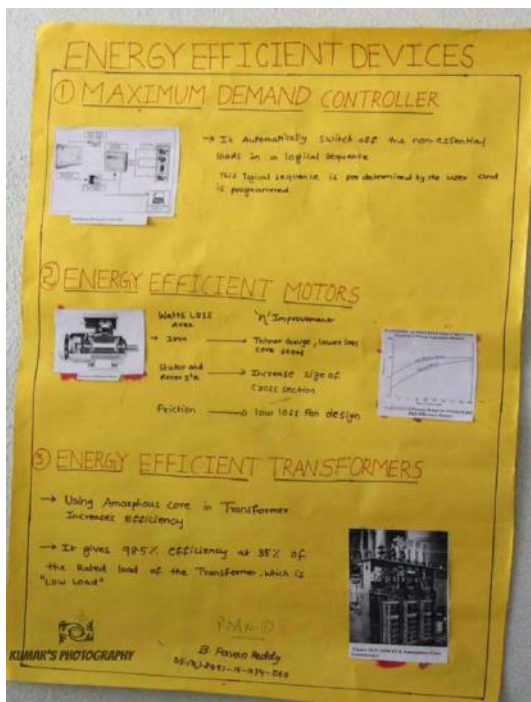 ENERGY EFFICIENT DEVICES
① MAXIMUM DEMAND CONTROLLER
→ It Automatically switch off the non-essential
loads in a logical sequence
This logical sequence is pre determined by the user and
is programmed.
② ENERGY EFFICIENT MOTORS
Watts Loss
Area
"η" Improvement
→ Iron → Thinner Gauge, lower loss
core steel
Stator and
Rotor I²R → Increase size of
cross section
Friction → low loss Fan design
③ ENERGY EFFICIENT TRANSFORMERS
→ Using Amorphous core in Transformer
Increases Efficiency
→ It gives 98.5% efficiency at 35% of
the Rated load of the Transformer, which is
"Low Load"
KUMAR'S PHOTOGRAPHY
B. Pavan Reddy